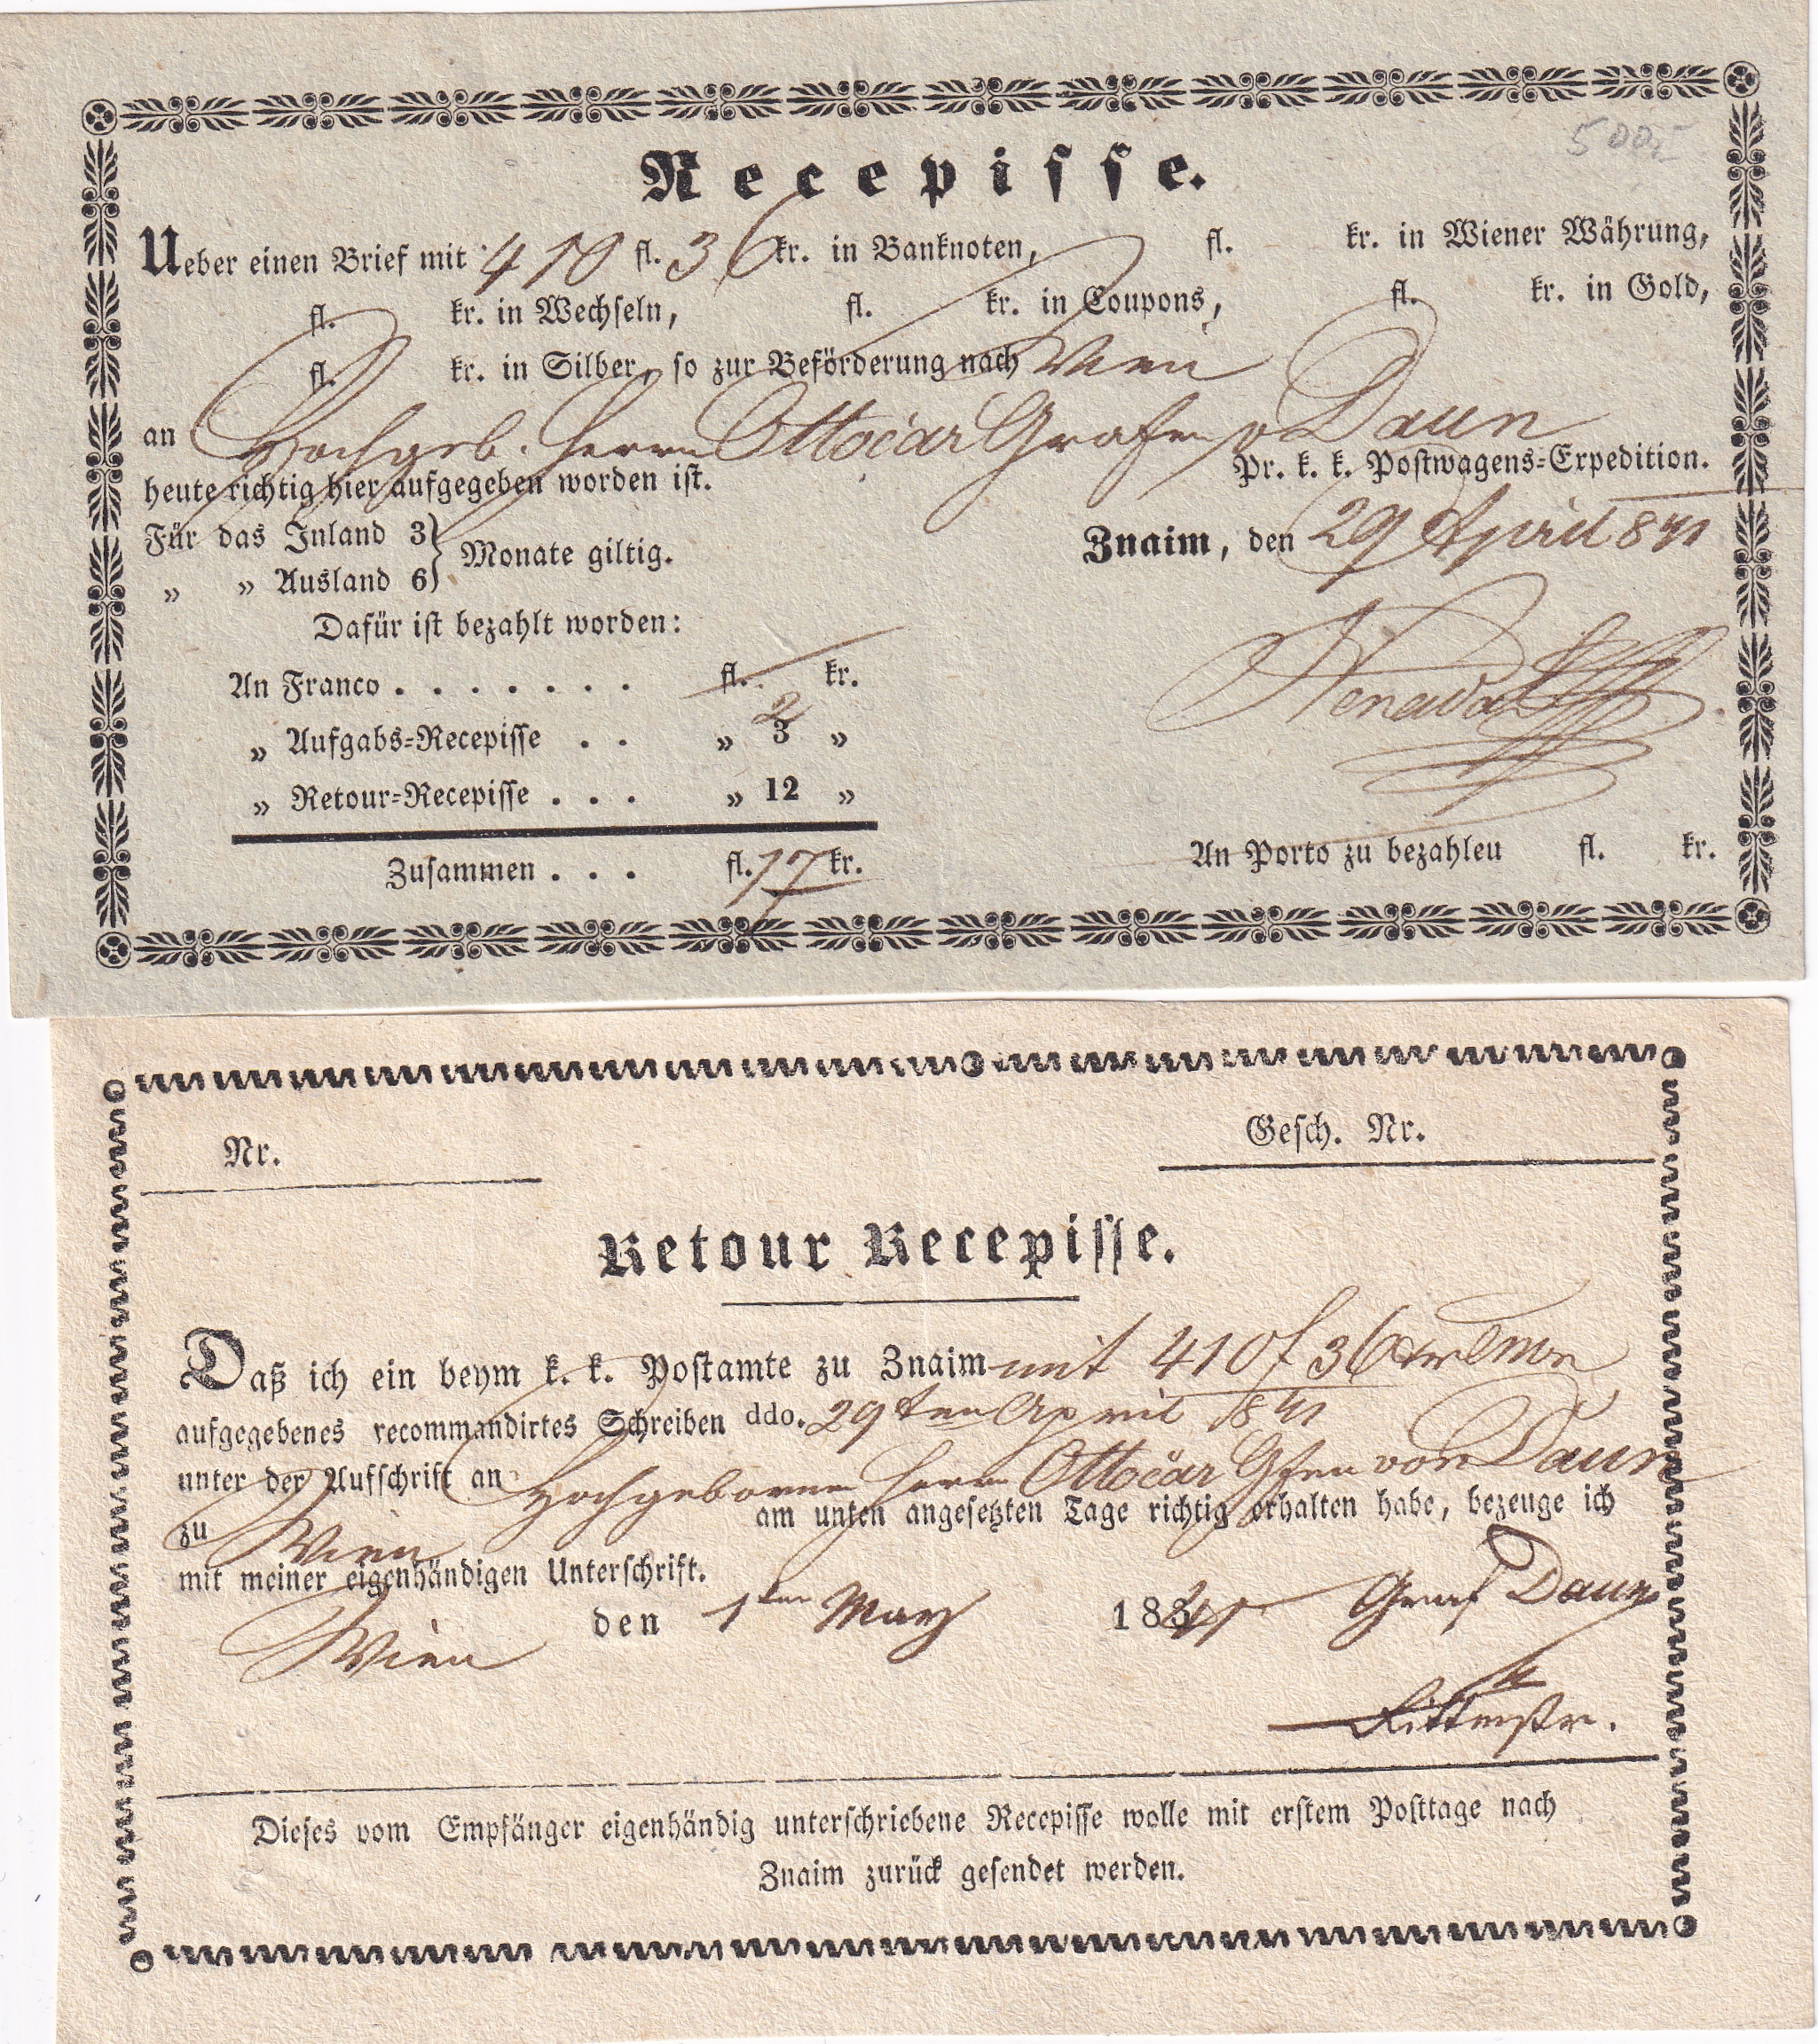 500
Recepisse.
Ueber einen Brief mit 410 fl. 36 kr. in Banknoten, fl. kr. in Wiener Währung,
fl. kr. in Wechseln, fl. kr. in Coupons, fl. kr. in Gold,
fl. kr. in Silber, so zur Beförderung nach Wien
an Hochgeb. Herrn Ottocar Grafen v Daun
heute richtig hier aufgegeben worden ist. Pr. k. k. Postwagens-Expedition.
Für das Inland 3 } Monate giltig. Znaim, den 29 April 841
„ „ Ausland 6
Dafür ist bezahlt worden:
An Franco . . . . . . . fl. kr.
2
„ Aufgabs-Recepisse . . „ 3 „
„ Retour-Recepisse . . . „ 12 „
Zusammen . . . fl. 17 kr. An Porto zu bezahleu fl. kr.
Nr. Gesch. Nr.
Retour Recepisse.
Daß ich ein beym k. k. Postamte zu Znaim mit 410 f 36 xr
aufgegebenes recommandirtes Schreiben ddo. 29ten April 841
unter der Aufschrift an Hochgebornen Herrn Ottocar Gfen von Daun
zu Wien am unten angesetzten Tage richtig erhalten habe, bezeuge ich
mit meiner eigenhändigen Unterschrift.
Wien den 1ten May 1841 Graf Daun
Rittmstr.
Dieses vom Empfänger eigenhändig unterschriebene Recepisse wolle mit erstem Posttage nach
Znaim zurück gesendet werden.